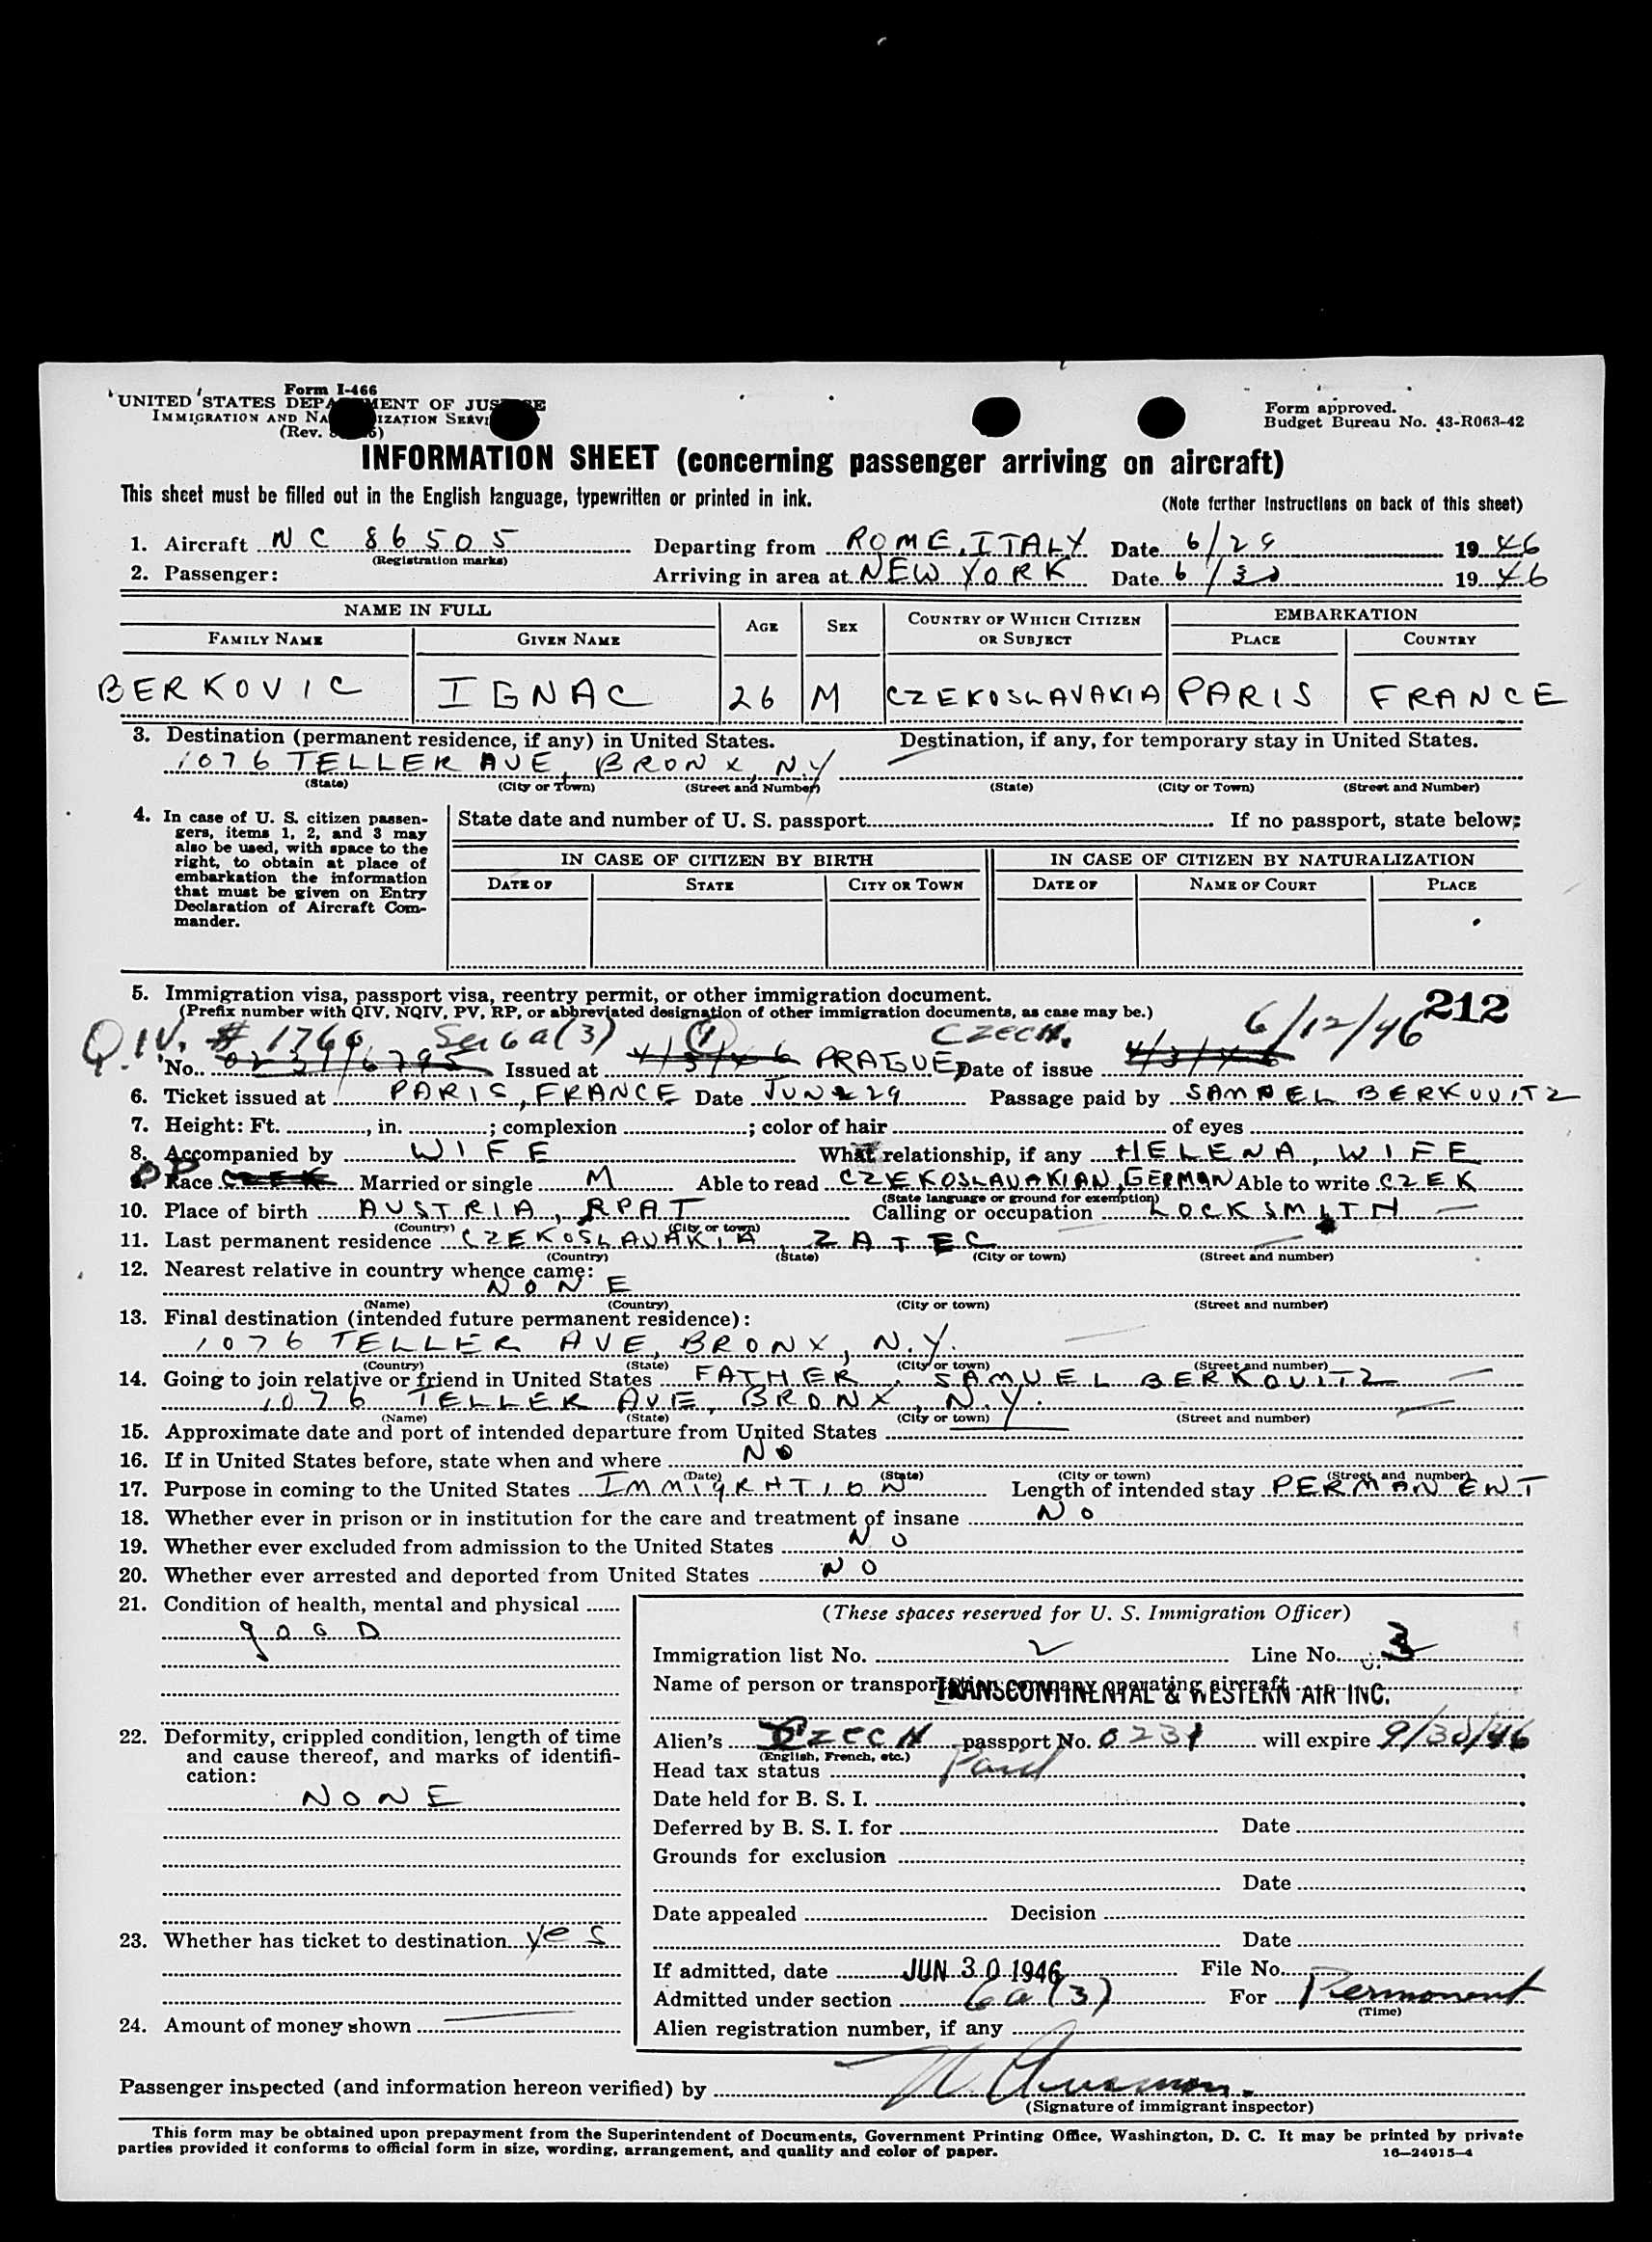 Form I-466
UNITED STATES DEPARTMENT OF JUSTICE
IMMIGRATION AND NATURALIZATION SERVICE
(Rev.
Form approved.
Budget Bureau No. 43-R063-42
INFORMATION SHEET (concerning passenger arriving on aircraft)
This sheet must be filled out in the English language, typewritten or printed in ink.
(Note further instructions on back of this sheet)
1. Aircraft NC 86505 Departing from ROME, ITALY Date 6/29 1946
(Registration marks)
2. Passenger: Arriving in area at NEW YORK Date 6/30 1946
NAME IN FULL AGE SEX COUNTRY OF WHICH CITIZEN OR SUBJECT EMBARKATION
FAMILY NAME GIVEN NAME PLACE COUNTRY
BERKOVIC IGNAC 26 M CZEKOSLAVAKIA PARIS FRANCE
3. Destination (permanent residence, if any) in United States. Destination, if any, for temporary stay in United States.
1076 TELLER AVE, BRONX, N.Y
(State) (City or Town) (Street and Number) (State) (City or Town) (Street and Number)
4. In case of U. S. citizen passengers, items 1, 2, and 3 may also be used, with space to the right, to obtain at place of embarkation the information that must be given on Entry Declaration of Aircraft Commander.
State date and number of U. S. passport If no passport, state below:
IN CASE OF CITIZEN BY BIRTH IN CASE OF CITIZEN BY NATURALIZATION
DATE OF STATE CITY OR TOWN DATE OF NAME OF COURT PLACE
5. Immigration visa, passport visa, reentry permit, or other immigration document.
(Prefix number with QIV, NQIV, PV, RP, or abbreviated designation of other immigration documents, as case may be.)
212
QIV. # 1760 Sec 6a(3) Czech. 6/12/46
No. 0231/6795 Issued at 4/3/46 PRAGUE Date of issue 4/3/46
6. Ticket issued at PARIS, FRANCE Date JUNE 29 Passage paid by SAMUEL BERKOVITZ
7. Height: Ft. , in. ; complexion ; color of hair of eyes
8. Accompanied by WIFE What relationship, if any HELENA, WIFE
9. Race CZEK Married or single M Able to read CZEKOSLAVAKIAN, GERMAN Able to write CZEK
(State language or ground for exemption)
10. Place of birth AUSTRIA, RPAT Calling or occupation LOCKSMITH
(Country) (City or town)
11. Last permanent residence CZEKOSLAVAKIA, ZATEC
(Country) (State) (City or town) (Street and number)
12. Nearest relative in country whence came:
NONE
(Name) (Country) (City or town) (Street and number)
13. Final destination (intended future permanent residence):
1076 TELLER AVE, BRONX, N.Y.
(Country) (State) (City or town) (Street and number)
14. Going to join relative or friend in United States FATHER, SAMUEL BERKOVITZ
1076 TELLER AVE, BRONX, N.Y.
(Name) (State) (City or town) (Street and number)
15. Approximate date and port of intended departure from United States
16. If in United States before, state when and where NO
(Date) (State) (City or town) (Street and number)
17. Purpose in coming to the United States IMMIGRATION Length of intended stay PERMANENT
18. Whether ever in prison or in institution for the care and treatment of insane NO
19. Whether ever excluded from admission to the United States NO
20. Whether ever arrested and deported from United States NO
21. Condition of health, mental and physical
GOOD
22. Deformity, crippled condition, length of time and cause thereof, and marks of identification:
NONE
23. Whether has ticket to destination yes
24. Amount of money shown
(These spaces reserved for U. S. Immigration Officer)
Immigration list No. 2 Line No. 3
Name of person or transportation company operating aircraft
TRANSCONTINENTAL & WESTERN AIR INC.
Alien's CZECH passport No. 0231 will expire 9/30/46
(English, French, etc.)
Head tax status Paid
Date held for B. S. I.
Deferred by B. S. I. for Date
Grounds for exclusion
Date
Date appealed Decision
Date
If admitted, date JUN 30 1946 File No.
Admitted under section 6a(3) For Permanent
(Time)
Alien registration number, if any
Passenger inspected (and information hereon verified) by
(Signature of immigrant inspector)
This form may be obtained upon prepayment from the Superintendent of Documents, Government Printing Office, Washington, D. C. It may be printed by private
parties provided it conforms to official form in size, wording, arrangement, and quality and color of paper.
16—24915-4